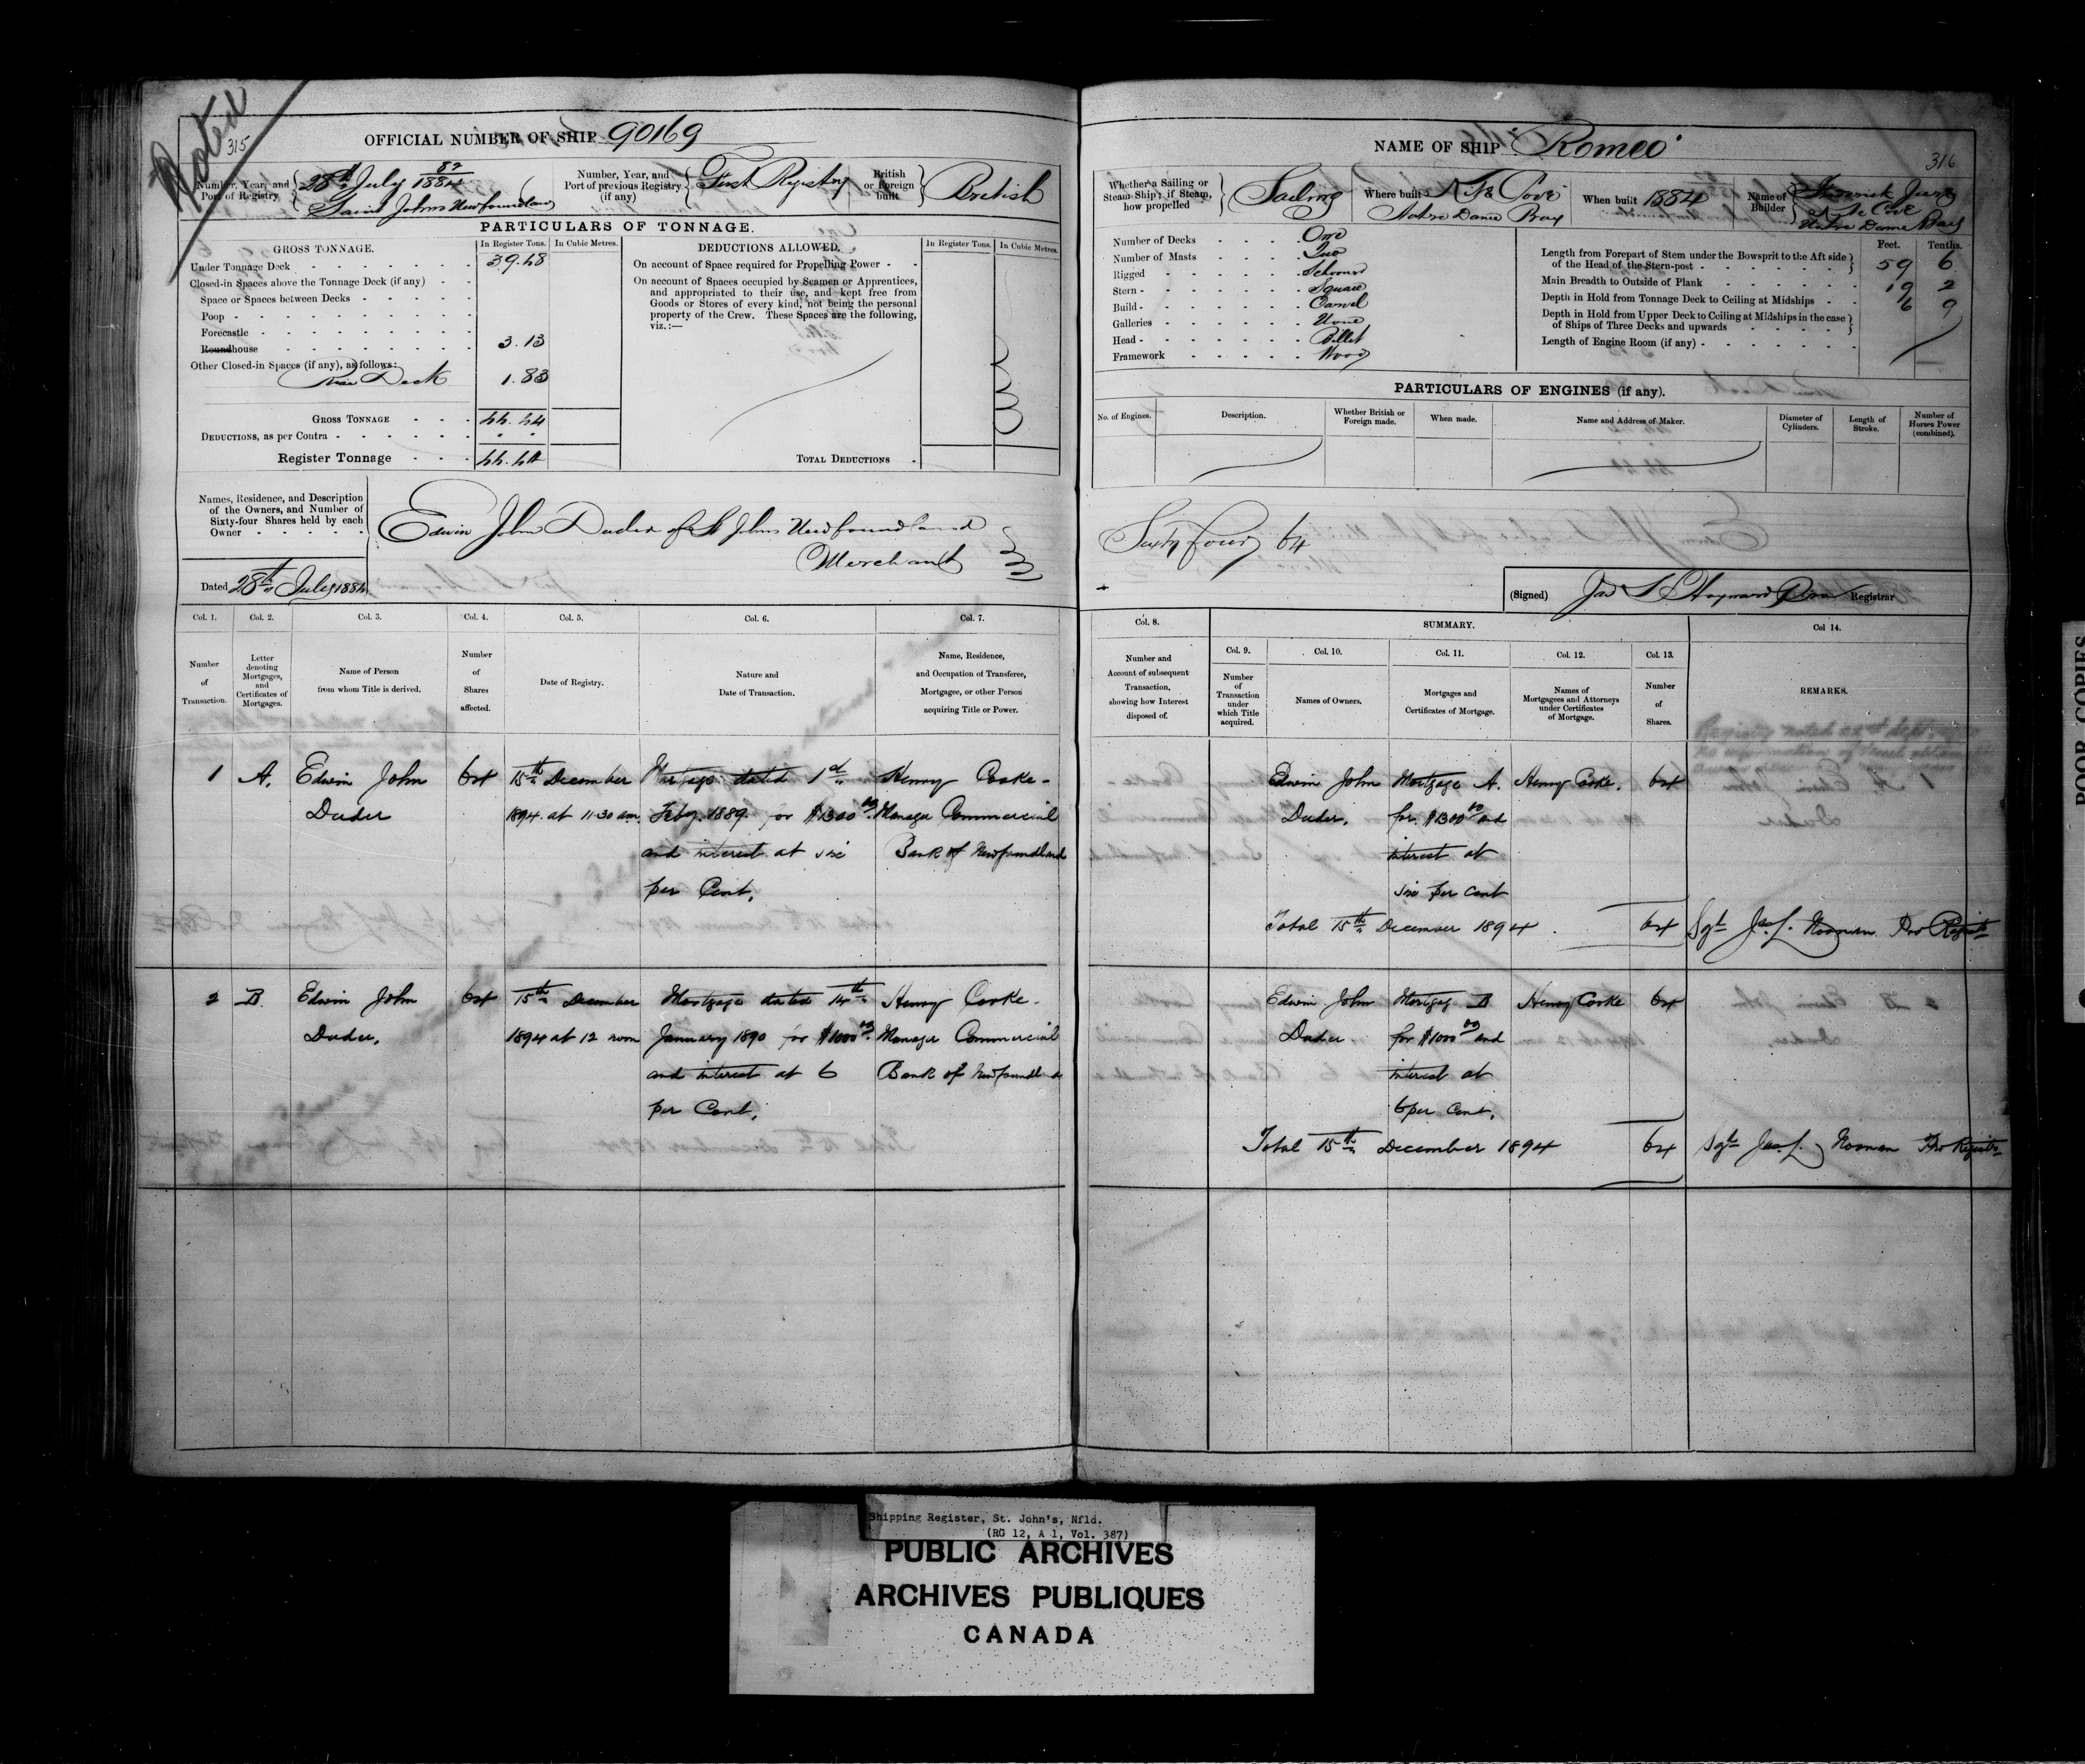 Noted
315
OFFICIAL NUMBER OF SHIP 90169
Number, Year, and Port of Registry
28th July 82/1884
Saint Johns Newfoundland
Number, Year, and Port of previous Registry (if any)
First Registry
British or Foreign built
British
PARTICULARS OF TONNAGE.
GROSS TONNAGE. In Register Tons. In Cubic Metres.
Under Tonnage Deck 39.48
Closed-in Spaces above the Tonnage Deck (if any)
Space or Spaces between Decks
Poop
Forecastle
Roundhouse 3.13
Other Closed-in Spaces (if any), as follows:
Deck 1.83
GROSS TONNAGE 44.44
DEDUCTIONS, as per Contra
Register Tonnage 44.44
DEDUCTIONS ALLOWED. In Register Tons. In Cubic Metres.
On account of Space required for Propelling Power
On account of Spaces occupied by Seamen or Apprentices, and appropriated to their use, and kept free from Goods or Stores of every kind, not being the personal property of the Crew. These Spaces are the following, viz.:—
TOTAL DEDUCTIONS
Names, Residence, and Description of the Owners, and Number of Sixty-four Shares held by each Owner
Edwin John Duder of St Johns Newfoundland
Merchant
Dated 28th July 1884
Col. 1. Col. 2. Col. 3. Col. 4. Col. 5. Col. 6. Col. 7.
Number of Transaction.
Letter denoting Mortgages, and Certificates of Mortgages.
Name of Person from whom Title is derived.
Number of Shares affected.
Date of Registry.
Nature and Date of Transaction.
Name, Residence, and Occupation of Transferee, Mortgagee, or other Person acquiring Title or Power.
1 A. Edwin John 64 15th December Mortgage dated 1st Henry Cooke-
Duder 1894. at 11.30 am. Feby. 1889. for $1300 00. Manager Commercial
and interest at six Bank of Newfoundland
per Cent.
2 B. Edwin John 64 15th December Mortgage dated 14th Henry Cooke-
Duder. 1894 at 12 noon January 1890 for $1000 00. Manager Commercial
and interest at 6 Bank of Newfoundland
per Cent.
316
NAME OF SHIP "Romeo"
Whether a Sailing or Steam Ship; if Steam, how propelled
Sailing
Where built
Cove
Notre Dame Bay
When built 1884
Name of Builder
Cove
Notre Dame Bay
Number of Decks One
Number of Masts Two
Rigged Schooner
Stern Square
Build Carvel
Galleries None
Head Billet
Framework Wood
Feet. Tenths.
Length from Forepart of Stem under the Bowsprit to the Aft side of the Head of the Stern-post 59 6
Main Breadth to Outside of Plank 19 2
Depth in Hold from Tonnage Deck to Ceiling at Midships 6 9
Depth in Hold from Upper Deck to Ceiling at Midships in the case of Ships of Three Decks and upwards
Length of Engine Room (if any)
PARTICULARS OF ENGINES (if any).
No. of Engines.
Description.
Whether British or Foreign made.
When made.
Name and Address of Maker.
Diameter of Cylinders.
Length of Stroke.
Number of Horses Power (combined).
Sixty four 64
(Signed) Jas L Hayward Pro Registrar
Col. 8. SUMMARY. Col 14.
Number and Account of subsequent Transaction, showing how Interest disposed of.
Col. 9. Col. 10. Col. 11. Col. 12. Col. 13.
Number of Transaction under which Title acquired.
Names of Owners.
Mortgages and Certificates of Mortgage.
Names of Mortgagees and Attorneys under Certificates of Mortgage.
Number of Shares.
REMARKS.
Registry noted
no information of
Edwin John Mortgage A. Henry Cooke. 64
Duder. for $1300 00 and
interest at
six per cent
Total 15th December 1894. 64 Sgd Jas. L. Noonan Pro Registr
Edwin John Mortgage B Henry Cooke 64
Duder. for $1000 00 and
interest at
6 per Cent.
Total 15th December 1894 64 Sgd Jas. L. Noonan Pro Registr
POOR COPIES
Shipping Register, St. John's, Nfld.
(RG 12, A 1, Vol. 387)
PUBLIC ARCHIVES
ARCHIVES PUBLIQUES
CANADA